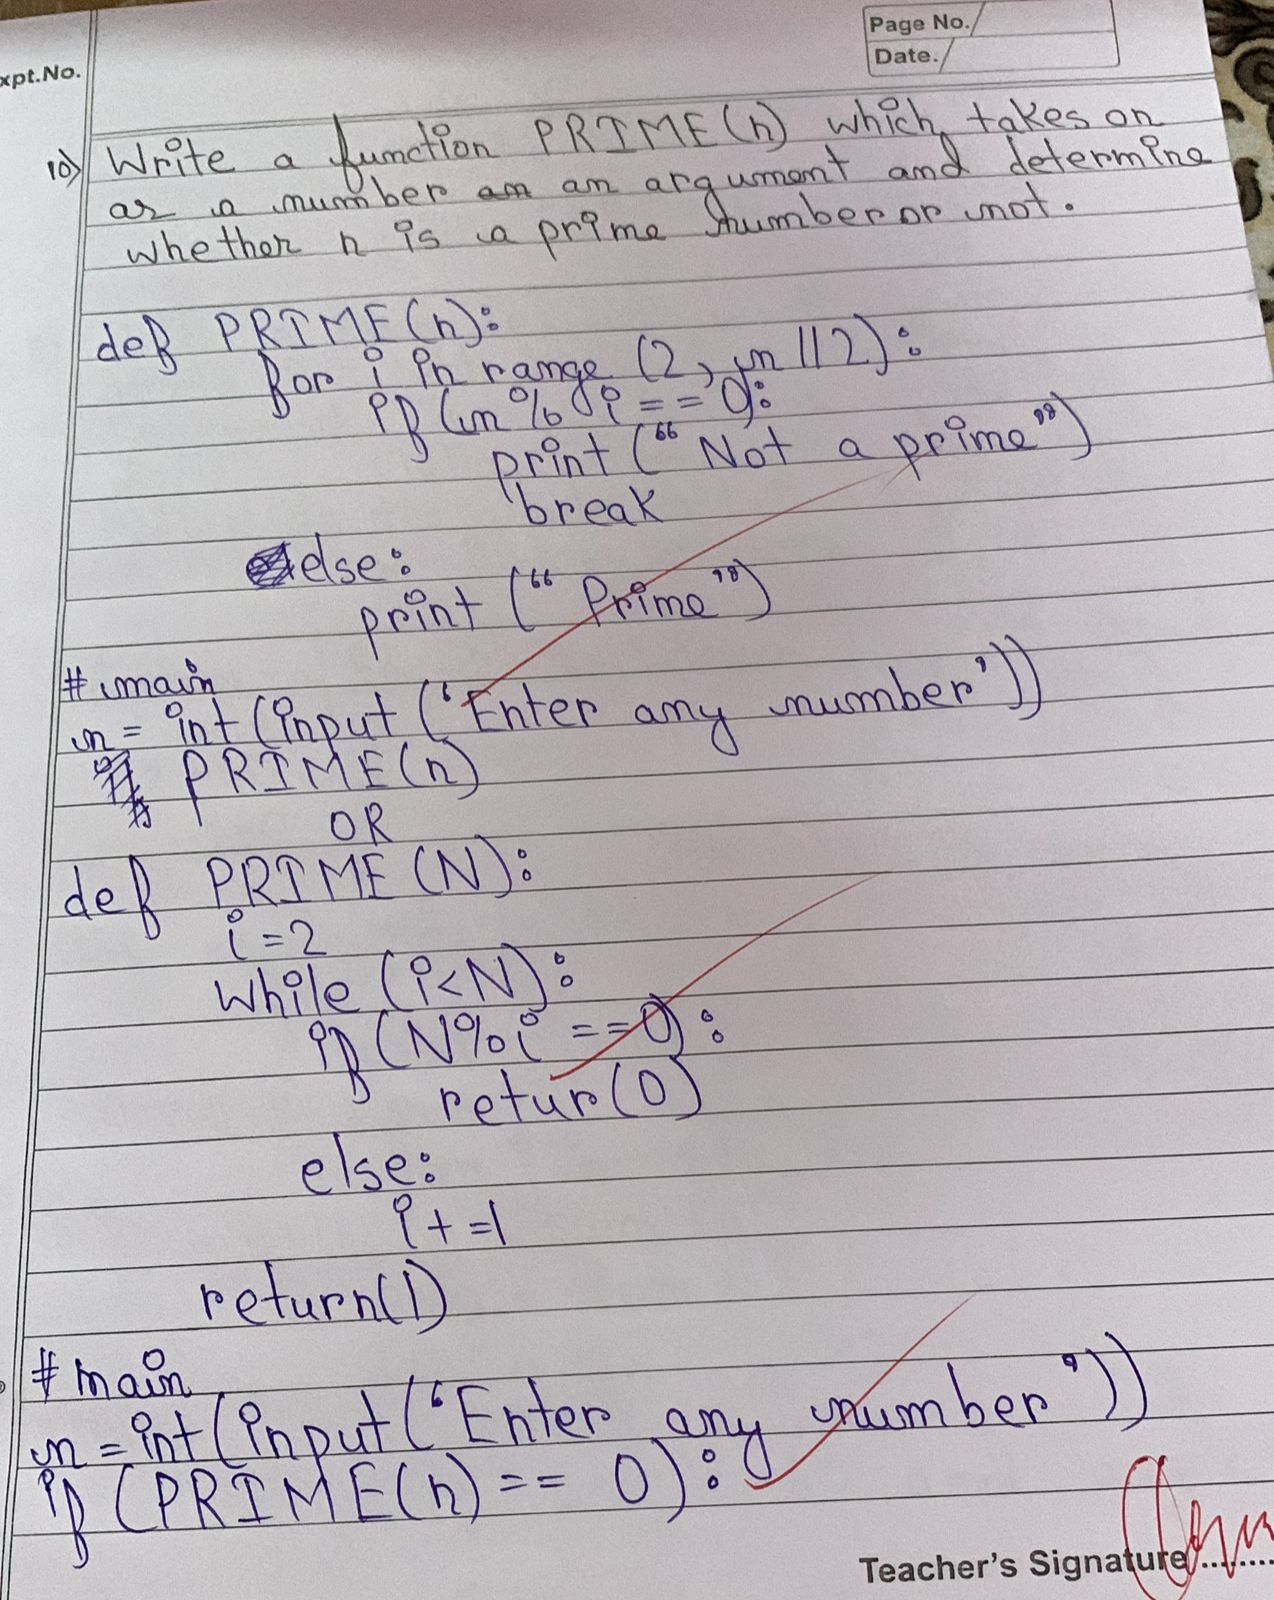 Page No.
Date.
xpt.No.
10) Write a function PRIME(n) which takes on
as a number am an argument and determine
whether n is a prime number or not.
def PRIME(n):
for i in range (2, n//2):
if (n % i == 0):
print ("Not a prime")
break
else:
print ("Prime")
# main
n = int(input('Enter any number'))
PRIME(n)
OR
def PRIME(N):
i=2
while (i<N):
if (N%i ==0):
retur(0)
else:
i+=1
return(1)
# main
n = int(input('Enter any number'))
if (PRIME(n) == 0):
Teacher's Signature